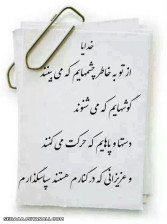 خدایا
از تو به خاطر چشمهایم که می بینند
گوشهایم که می شنوند
دستها و پاهایم که حرکت می کنند
و عزیزانی که در کنارم هستند سپاسگذارم